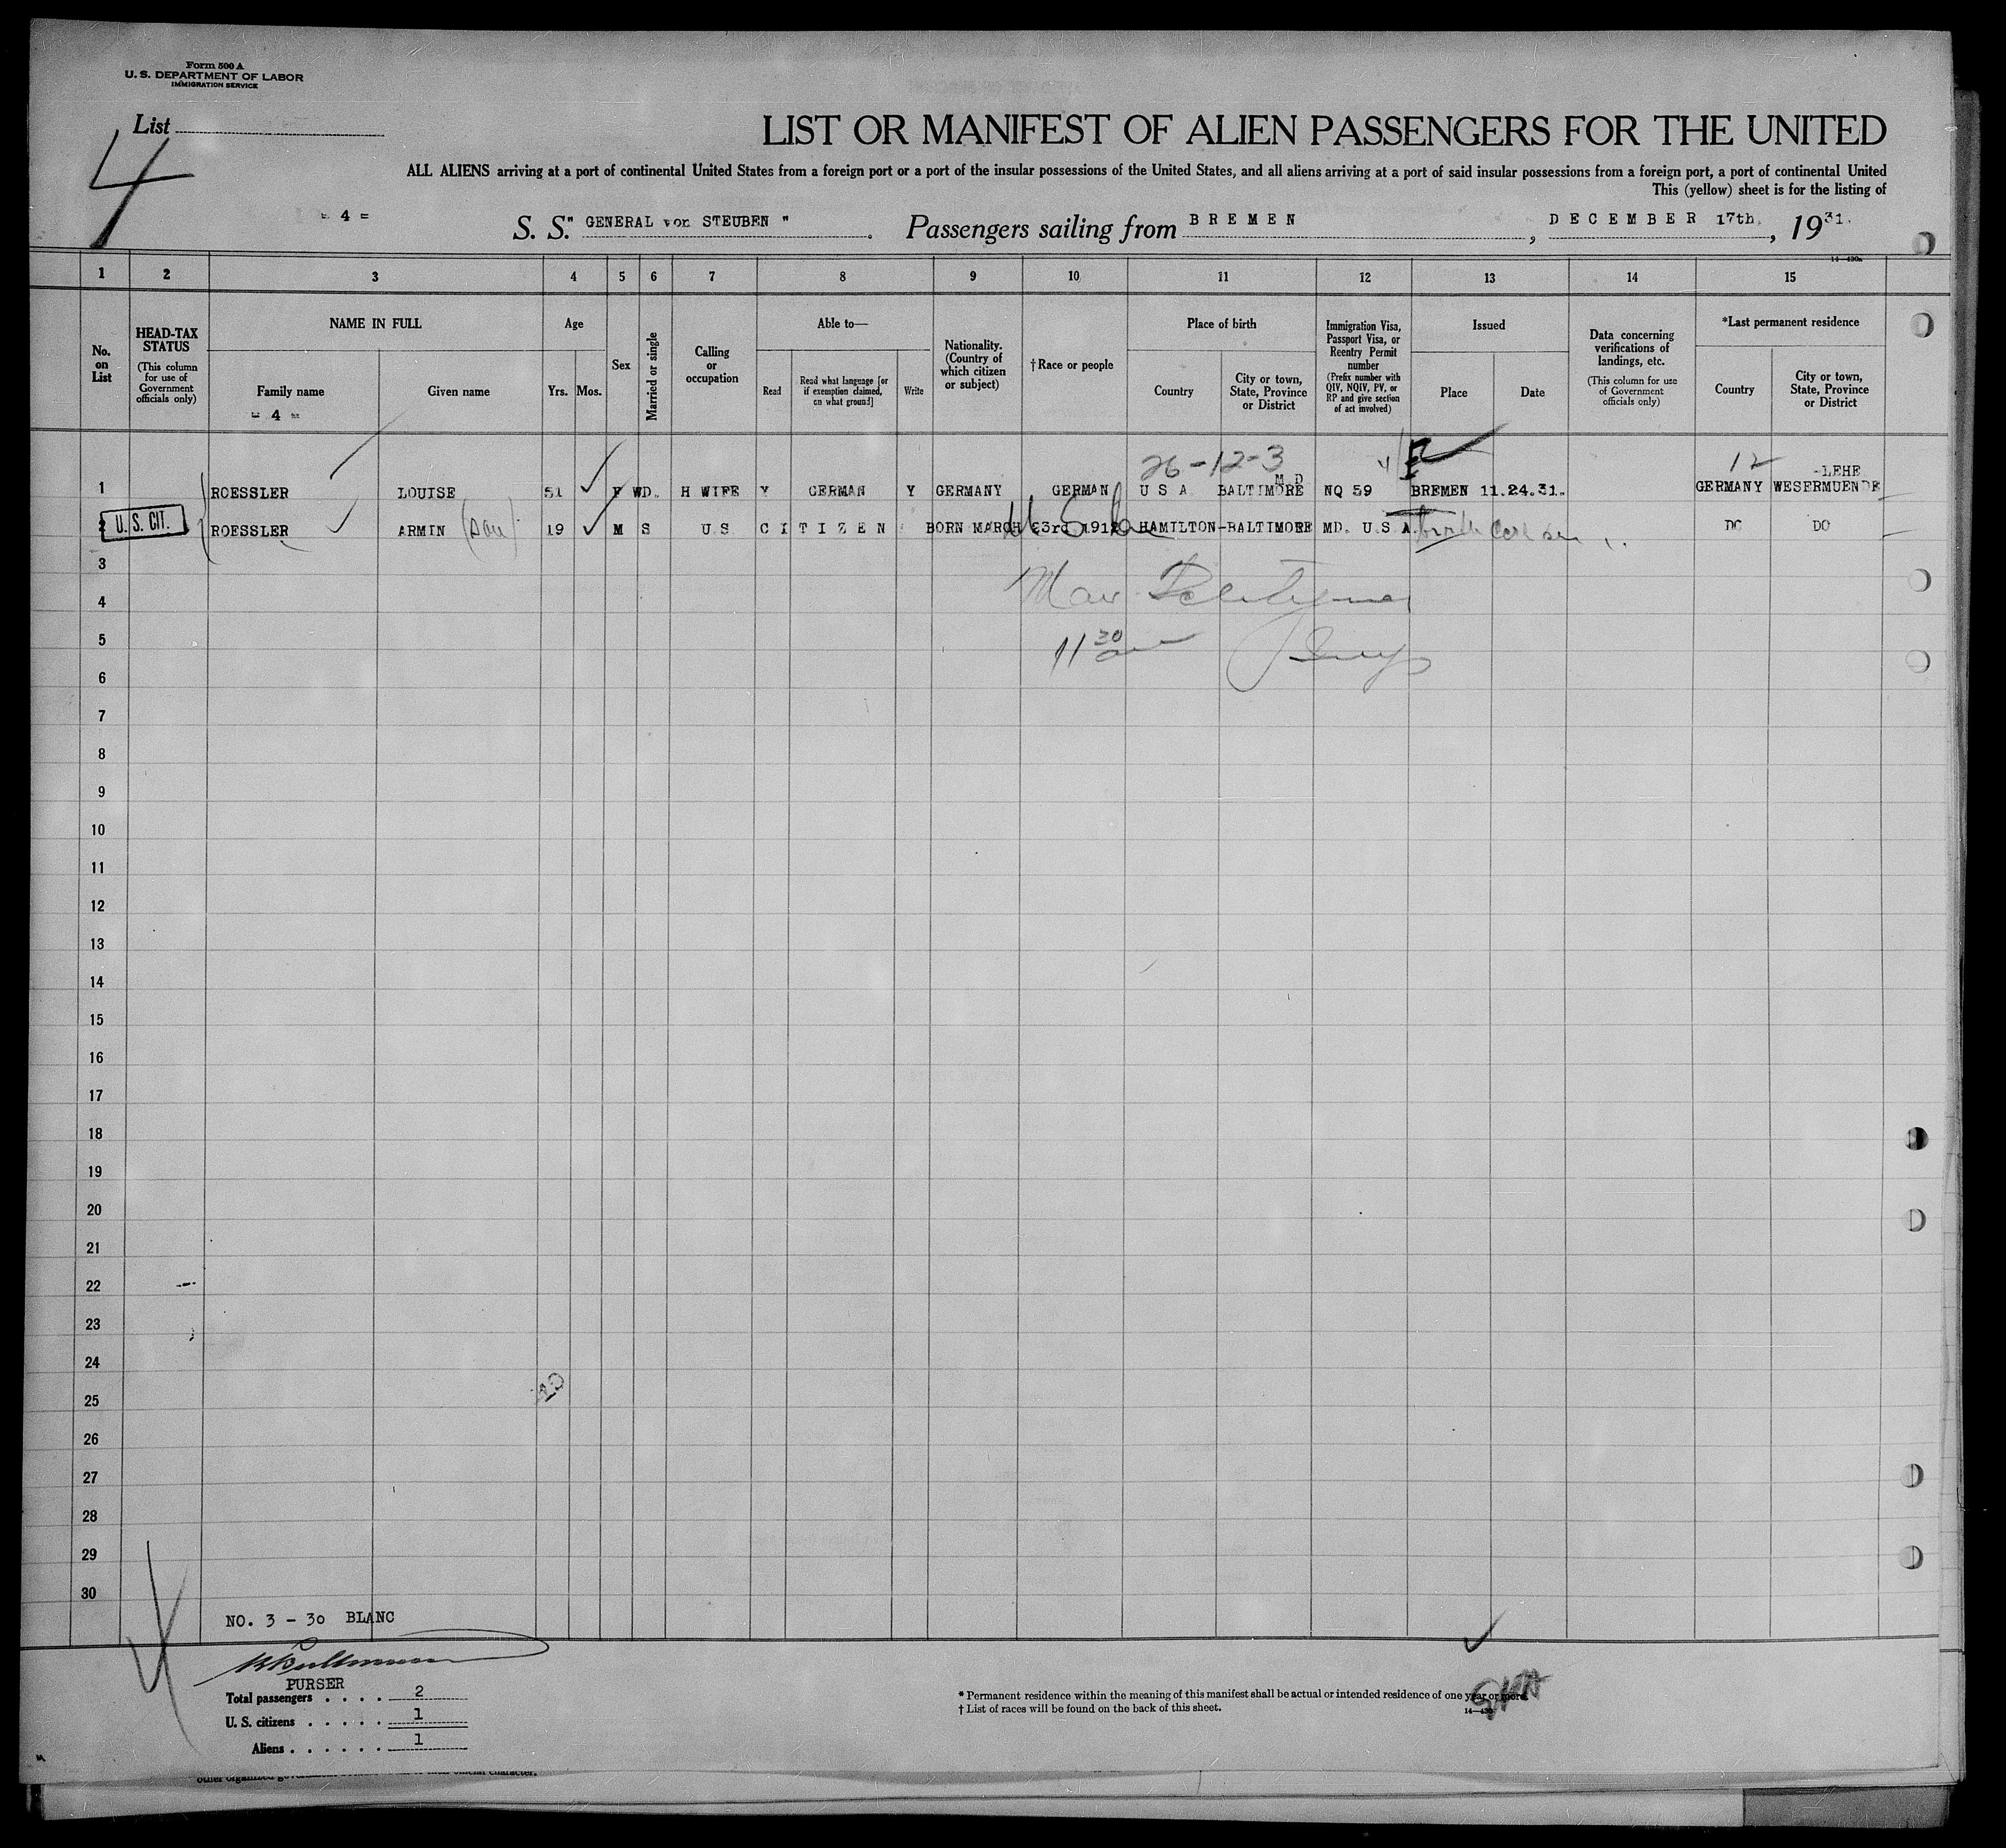 Form 500 A
U. S. DEPARTMENT OF LABOR
IMMIGRATION SERVICE
List
4
LIST OR MANIFEST OF ALIEN PASSENGERS FOR THE UNITED
ALL ALIENS arriving at a port of continental United States from a foreign port or a port of the insular possessions of the United States, and all aliens arriving at a port of said insular possessions from a foreign port, a port of continental United
This (yellow) sheet is for the listing of
= 4 = S. S. " GENERAL von STEUBEN ". Passengers sailing from BREMEN, DECEMBER 17th, 1931.
14—430a
1 2 3 4 5 6 7 8 9 10 11 12 13 14 15
No. on List
HEAD-TAX STATUS
(This column for use of Government officials only)
NAME IN FULL
Family name
= 4 =
Given name
Age
Yrs. Mos.
Sex
Married or single
Calling or occupation
Able to—
Read
Read what language [or if exemption claimed, on what ground]
Write
Nationality. (Country of which citizen or subject)
†Race or people
Place of birth
Country
City or town, State, Province or District
Immigration Visa, Passport Visa, or Reentry Permit number
(Prefix number with QIV, NQIV, PV, or RP and give section of act involved)
Issued
Place
Date
Data concerning verifications of landings, etc.
(This column for use of Government officials only)
*Last permanent residence
Country
City or town, State, Province or District
26-12-3 12
1 ROESSLER LOUISE 51 F WD. H WIFE Y GERMAN Y GERMANY GERMAN U S A BALTIMORE M D NQ 59 BREMEN 11.24.31. GERMANY WESERMUENDE -LEHE
2 U. S. CIT. ROESSLER ARMIN (son) 19 M S U.S CITIZEN BORN MARCH 23rd 1912 HAMILTON-BALTIMORE MD. U.S A. DO DO
3
4
5 11 30
6
7
8
9
10
11
12
13
14
15
16
17
18
19
20
21
22
23
24
25
26
27
28
29
30
NO. 3 - 30 BLANC
PURSER
Total passengers . . . . 2
U. S. citizens . . . . . 1
Aliens . . . . . . 1
* Permanent residence within the meaning of this manifest shall be actual or intended residence of one year or more.
† List of races will be found on the back of this sheet.
14—430